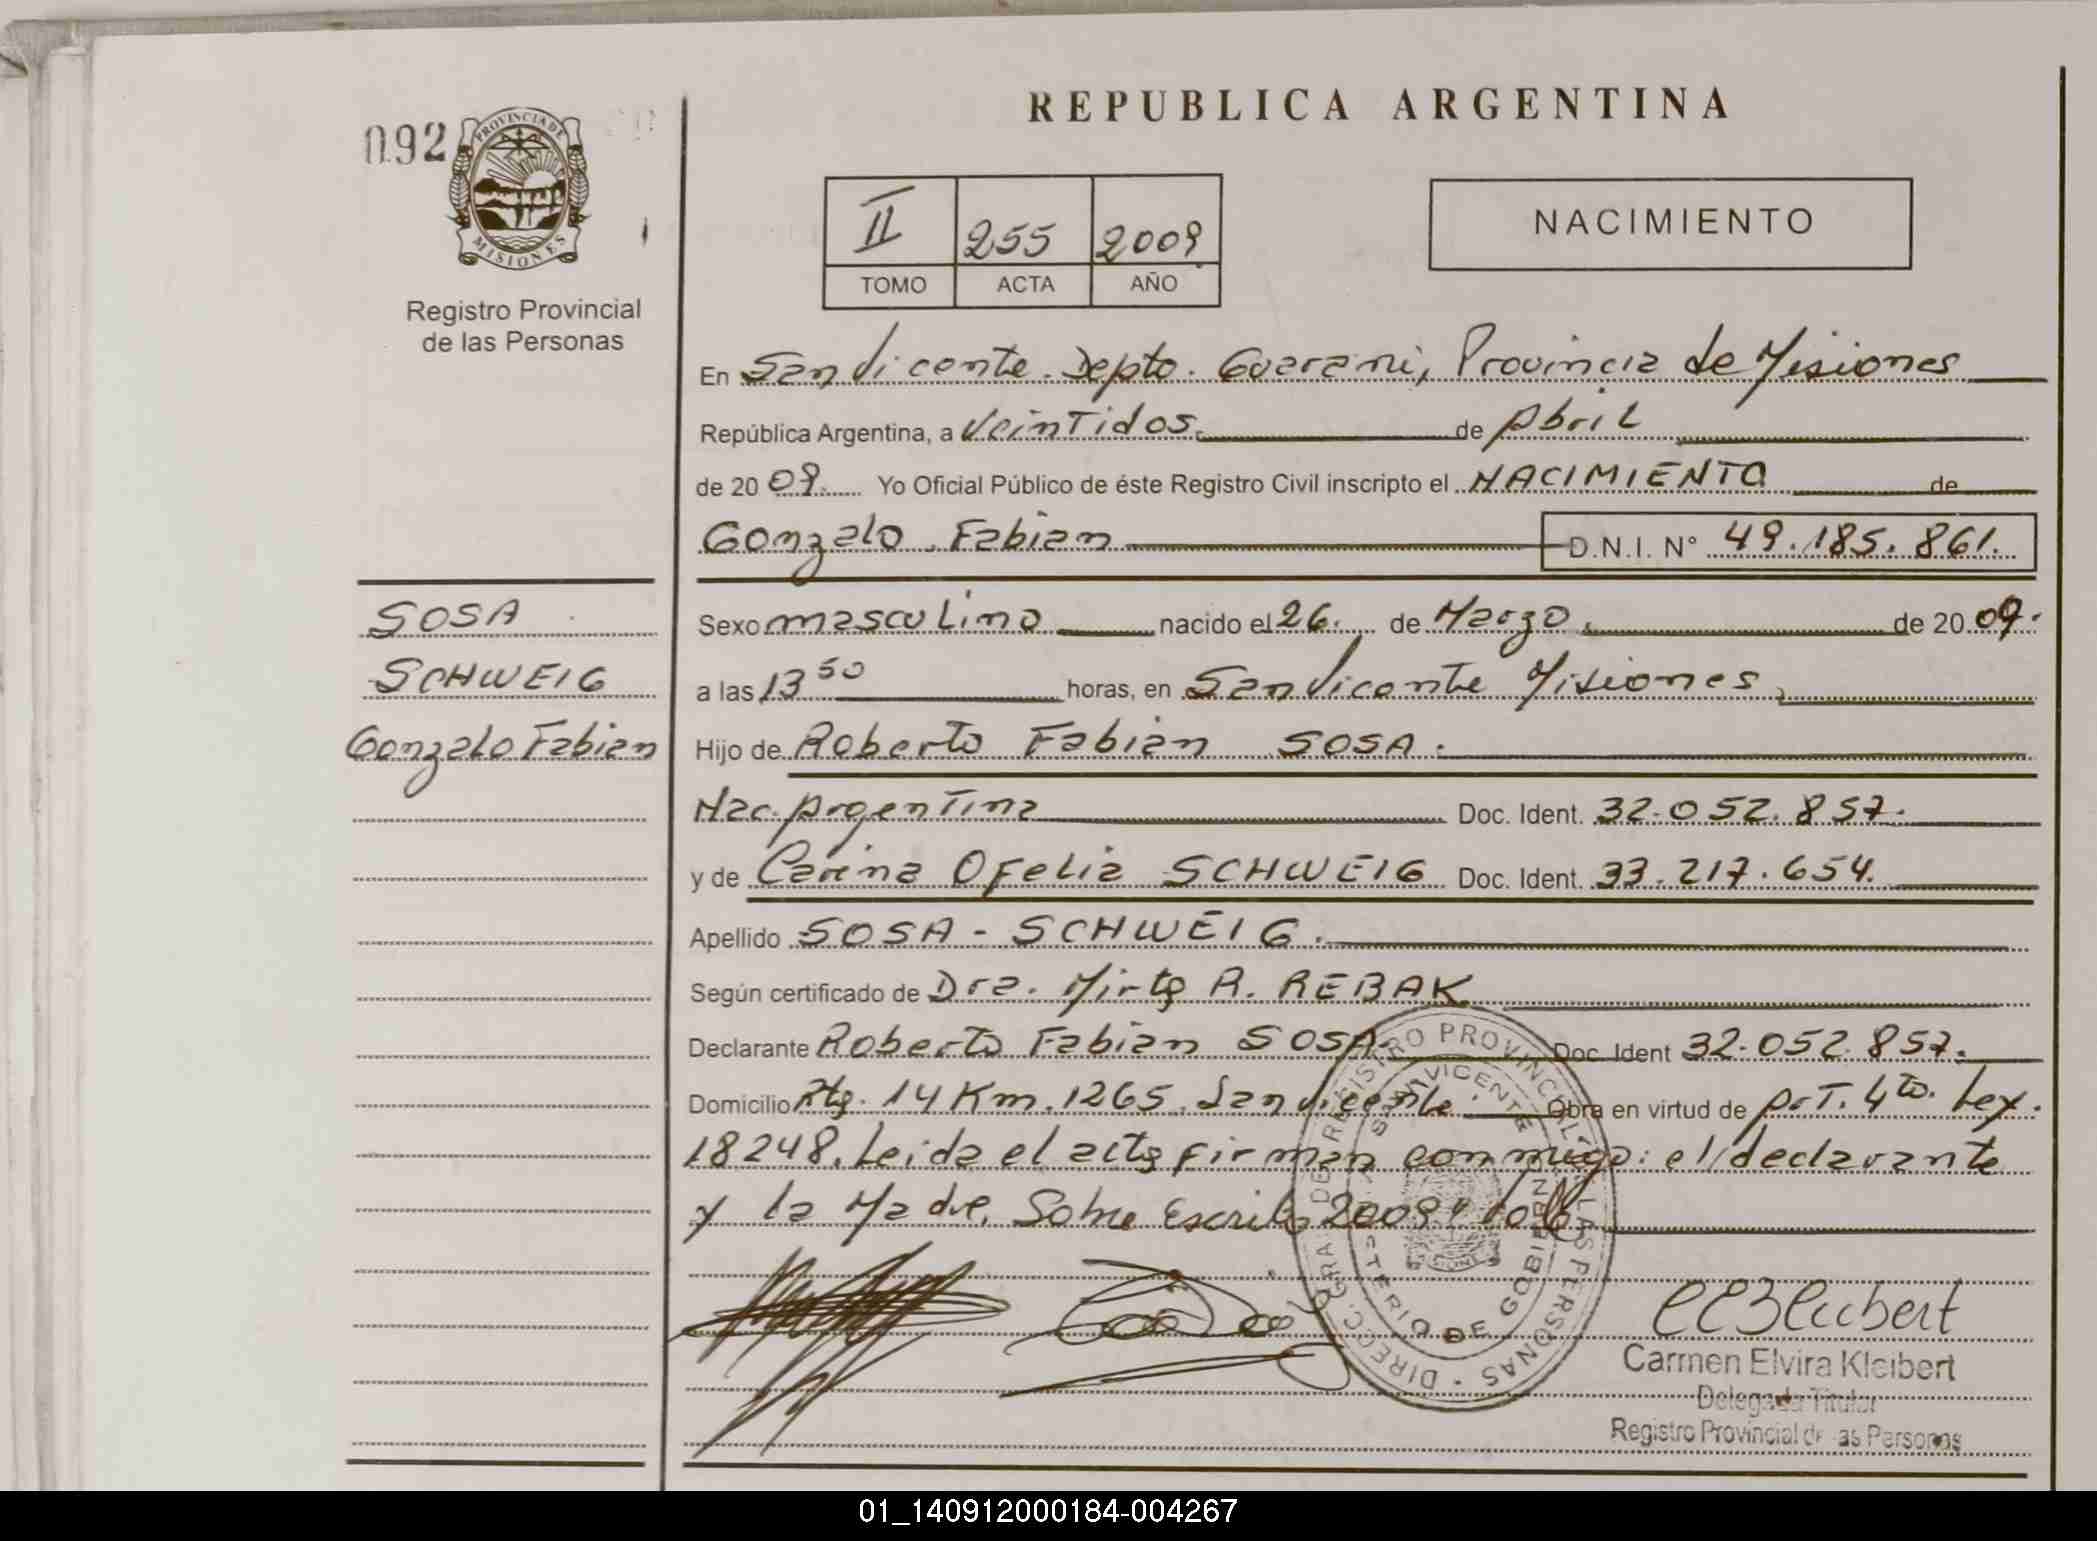 REPUBLICA ARGENTINA
092
PROVINCIA DE
MISIONES
Registro Provincial
de las Personas
II 255 2009
TOMO ACTA AÑO
NACIMIENTO
En San Vicente. Depto. Guarani, Provincia de Misiones
República Argentina, a Veintidos. de Abril
de 2009. Yo Oficial Público de éste Registro Civil inscripto el NACIMIENTO de
Gonzalo Fabian D.N.I. N° 49.185.861.
SOSA
SCHWEIG
Gonzalo Fabian
Sexo masculino nacido el 26. de Marzo. de 2009.
a las 13 50 horas, en San Vicente Misiones,
Hijo de Roberto Fabian SOSA.
Nac. Argentina Doc. Ident. 32.052.857.
y de Carina Ofelia SCHWEIG Doc. Ident. 33.217.654.
Apellido SOSA - SCHWEIG.
Según certificado de Dra. Mirta R. REBAK
Declarante Roberto Fabian SOSA. Doc. Ident 32.052.857.
Domicilio Rta. 14 Km. 1265. San Vicente. Obra en virtud de Art. 4to. Ley.
18248. Leida el acta firman conmigo: el declarante
y la Madre. Sobre Escrito 2009
DIRECC. GRAL DE REGISTRO PROVINCIAL DE LAS PERSONAS
SAN VICENTE
MINISTERIO DE GOBIERNO
CEKleibert
Carmen Elvira Kleibert
Delegada Titular
Registro Provincial de las Personas
01_140912000184-004267